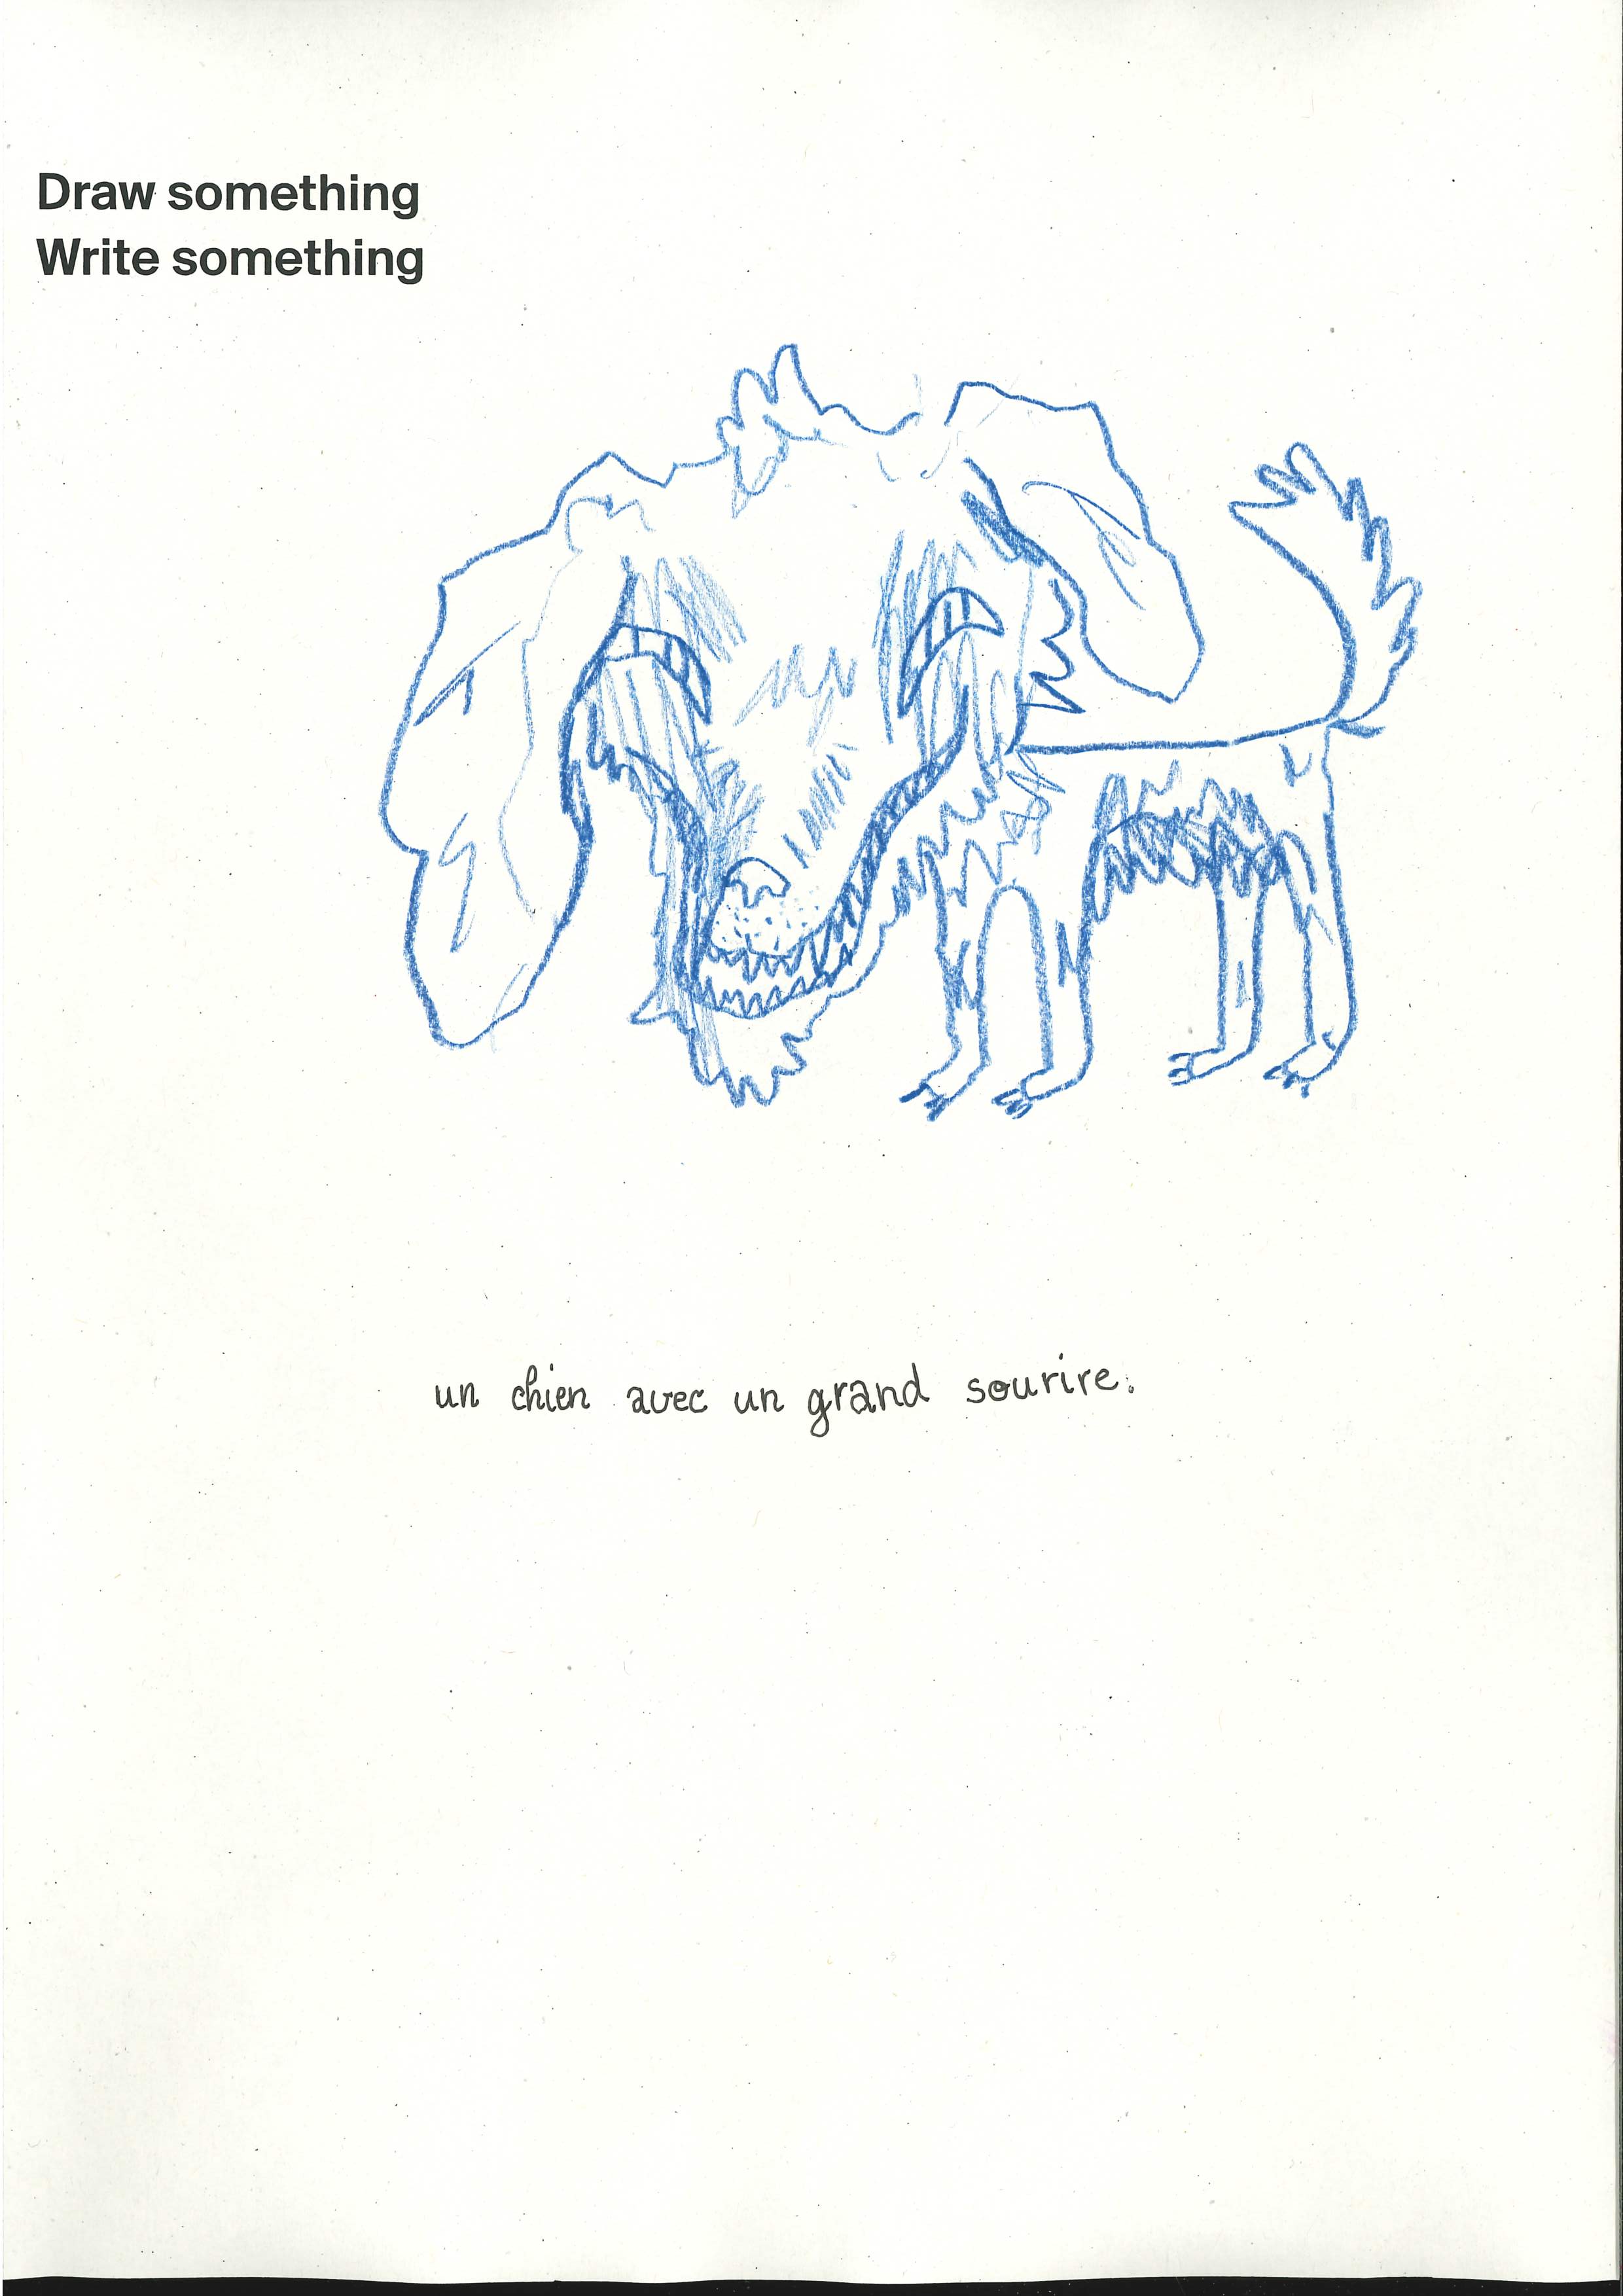 Draw something
Write something
un chien avec un grand sourire.